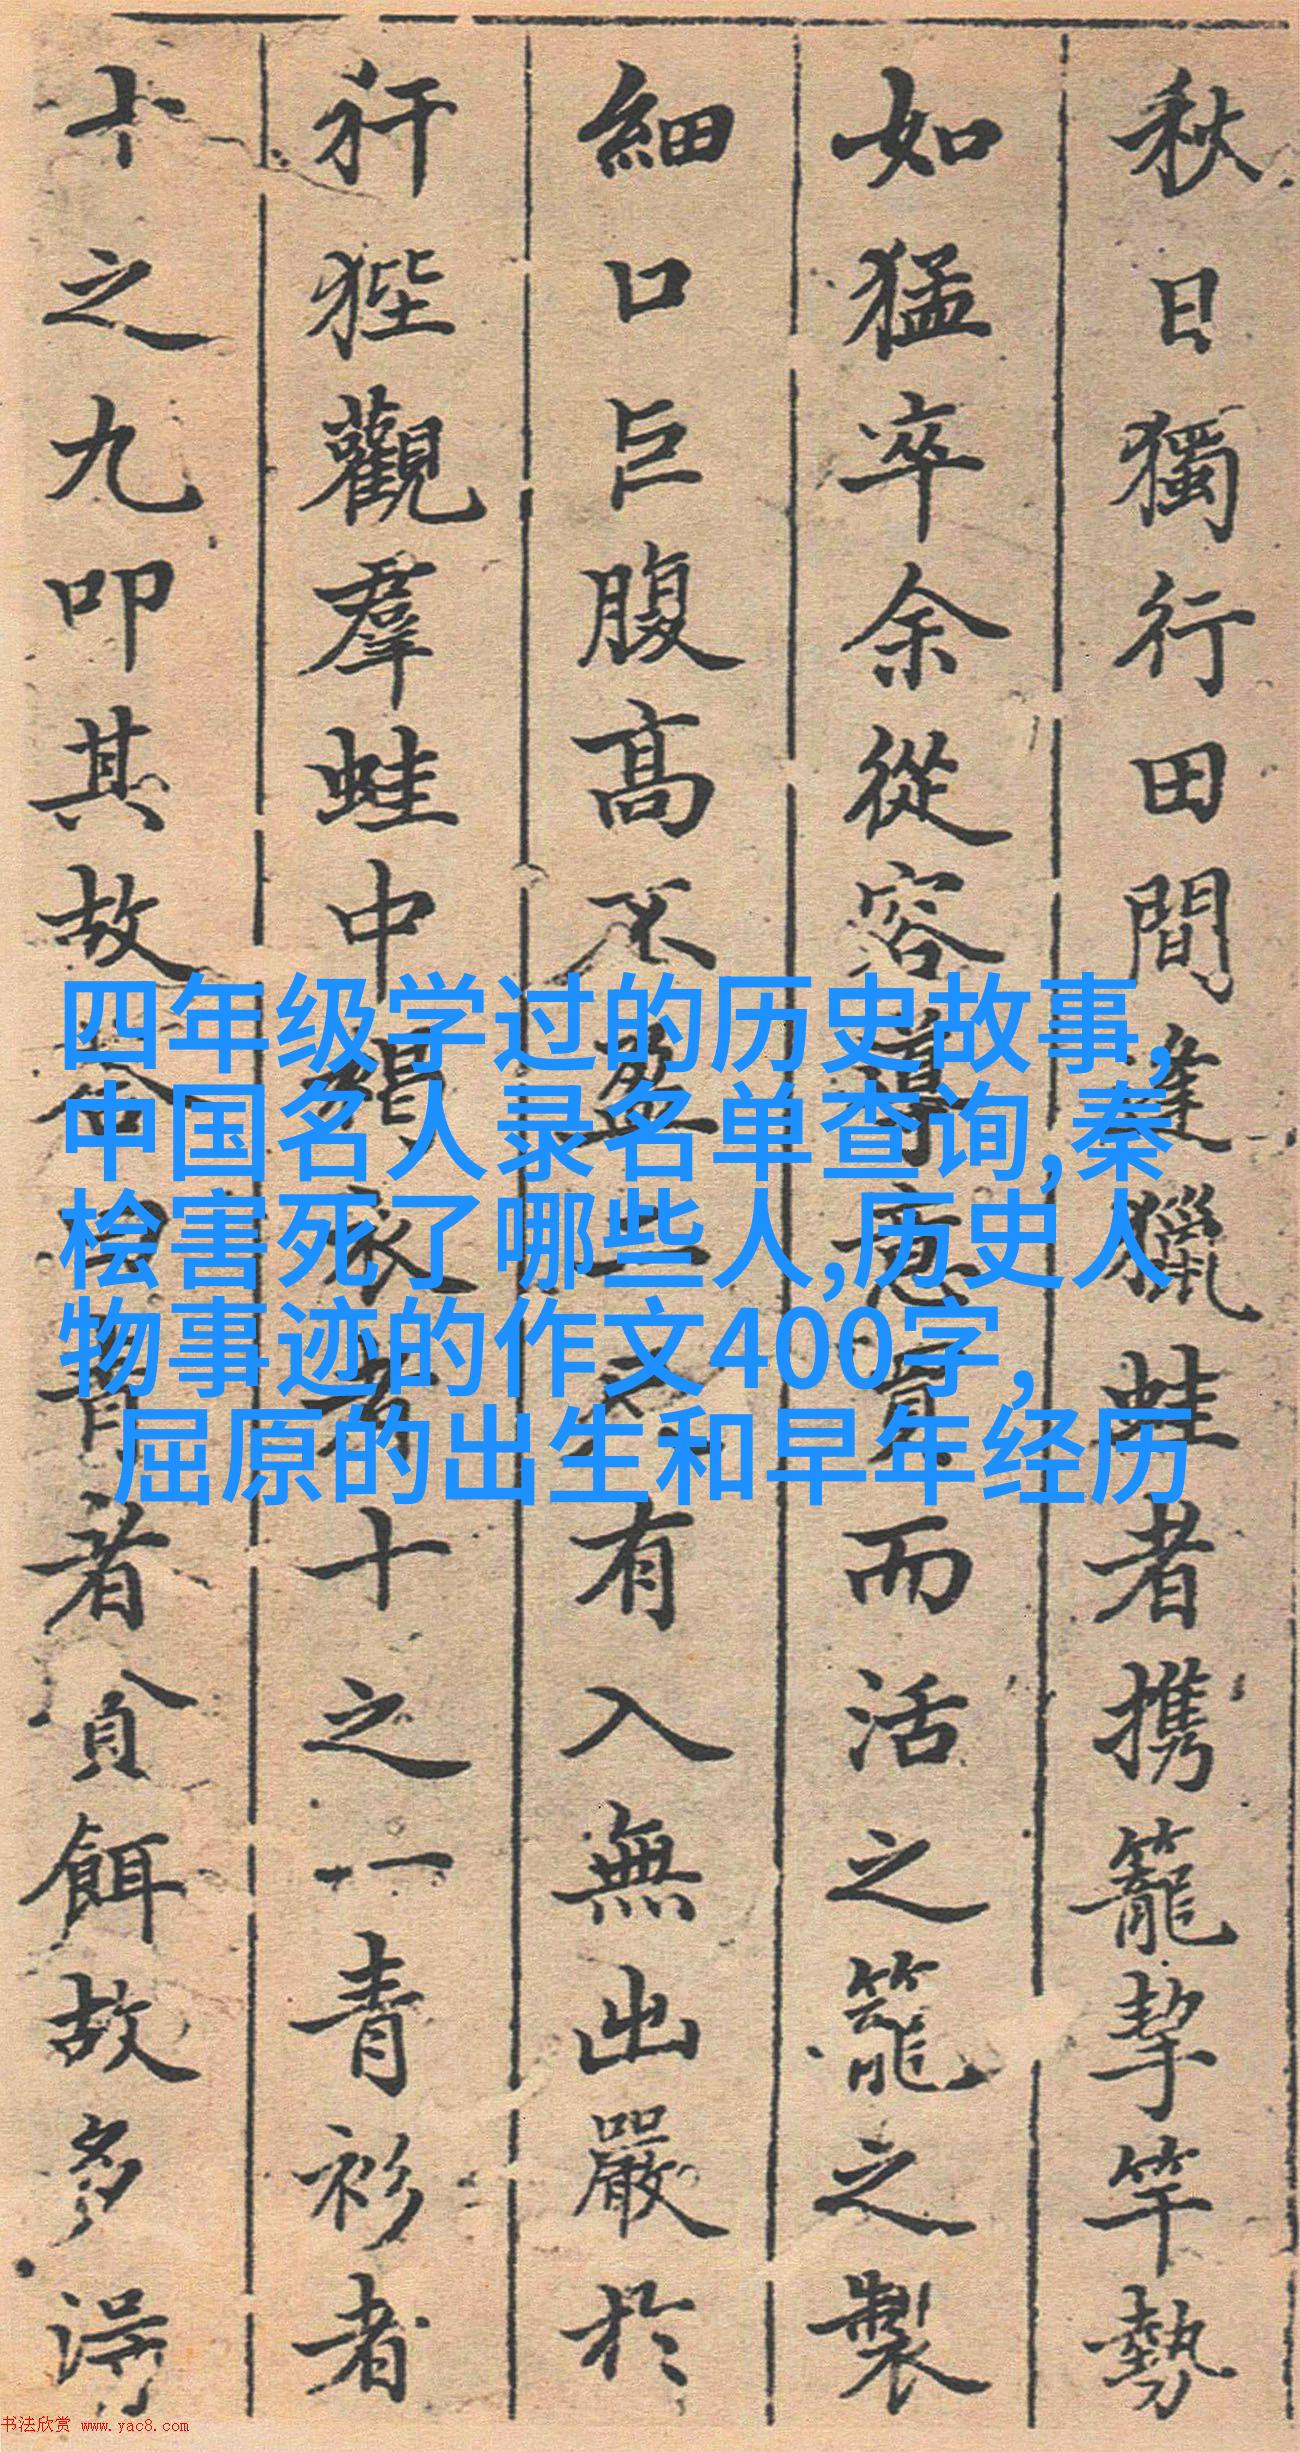 秋日獨行田間逢獵蛙者携籠挈竿勢
如猛卒余從容導意買而活之籠之製
細口巨腹高不盈二尺有入無出嚴於
犴狴觀羣蛙中褐衣者十之一青衫者
十之九叩其故答曰青者貪餌故多得
四年级学过的历史故事,
中国名人录名单查询,秦
桧害死了哪些人,历史人
物事迹的作文400字，
屈原的出生和早年经历
书法欣赏 www.yac8.com